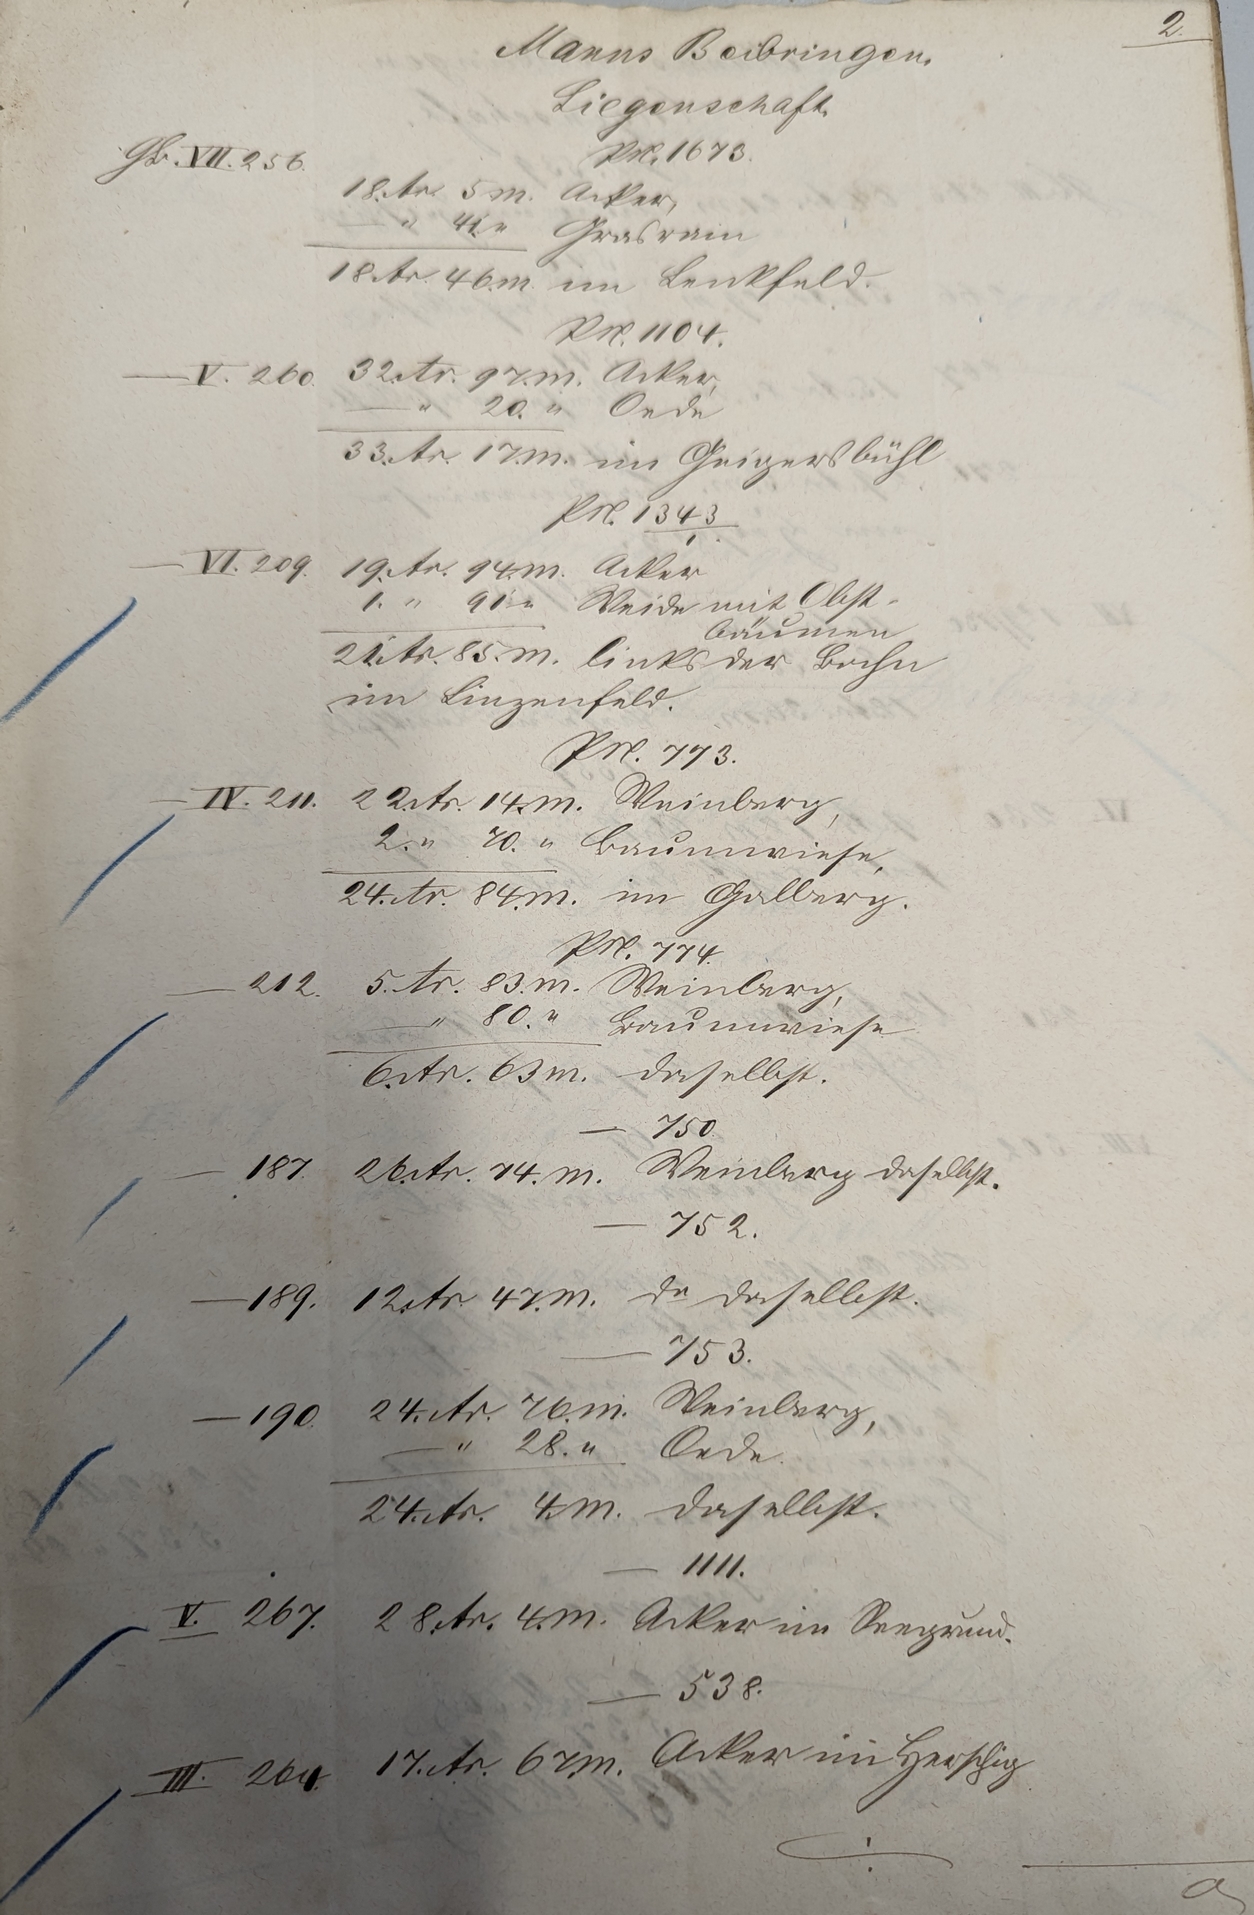 2.
Manns Beibringen.
Liegenschaft.
Gb. VII. 256. PN. 1673.
18. Ar. 5 m. Acker,
— " 41 " Grasrain
18. Ar. 46 m. im Lenkfeld.
PN. 1104.
— V. 260. 32. Ar. 97. m. Acker,
— " 20. " Oede
33. Ar. 17. m. im Geigersbühl
PN. 1343
— VI. 209. 19. Ar. 94. m. Acker
1. " 91 " Weide mit Obst-
bäumen
21. Ar. 85. m. links der Bahn
im Linzenfeld.
PN. 773.
— IV. 211. 22. Ar. 14. m. Weinberg,
2. " 70. " Baumwiese,
24. Ar. 84. m. im Galberg.
PN. 774.
— 212. 5. Ar. 83. m. Weinberg,
— " 80. " Baumwiese
6. Ar. 63 m. daselbst.
— 750.
— 187. 26. Ar. 74. m. Weinberg daselbst.
— 752.
— 189. 12. Ar. 47. m. do daselbst.
— 753.
— 190. 24. Ar. 76. m. Weinberg,
— " 28. " Oede.
24. Ar. 4. m. daselbst.
— 1111.
V. 267. 28. Ar. 4. m. Acker im Seegrund.
— 538.
III. 17. Ar. 67 m. Acker im